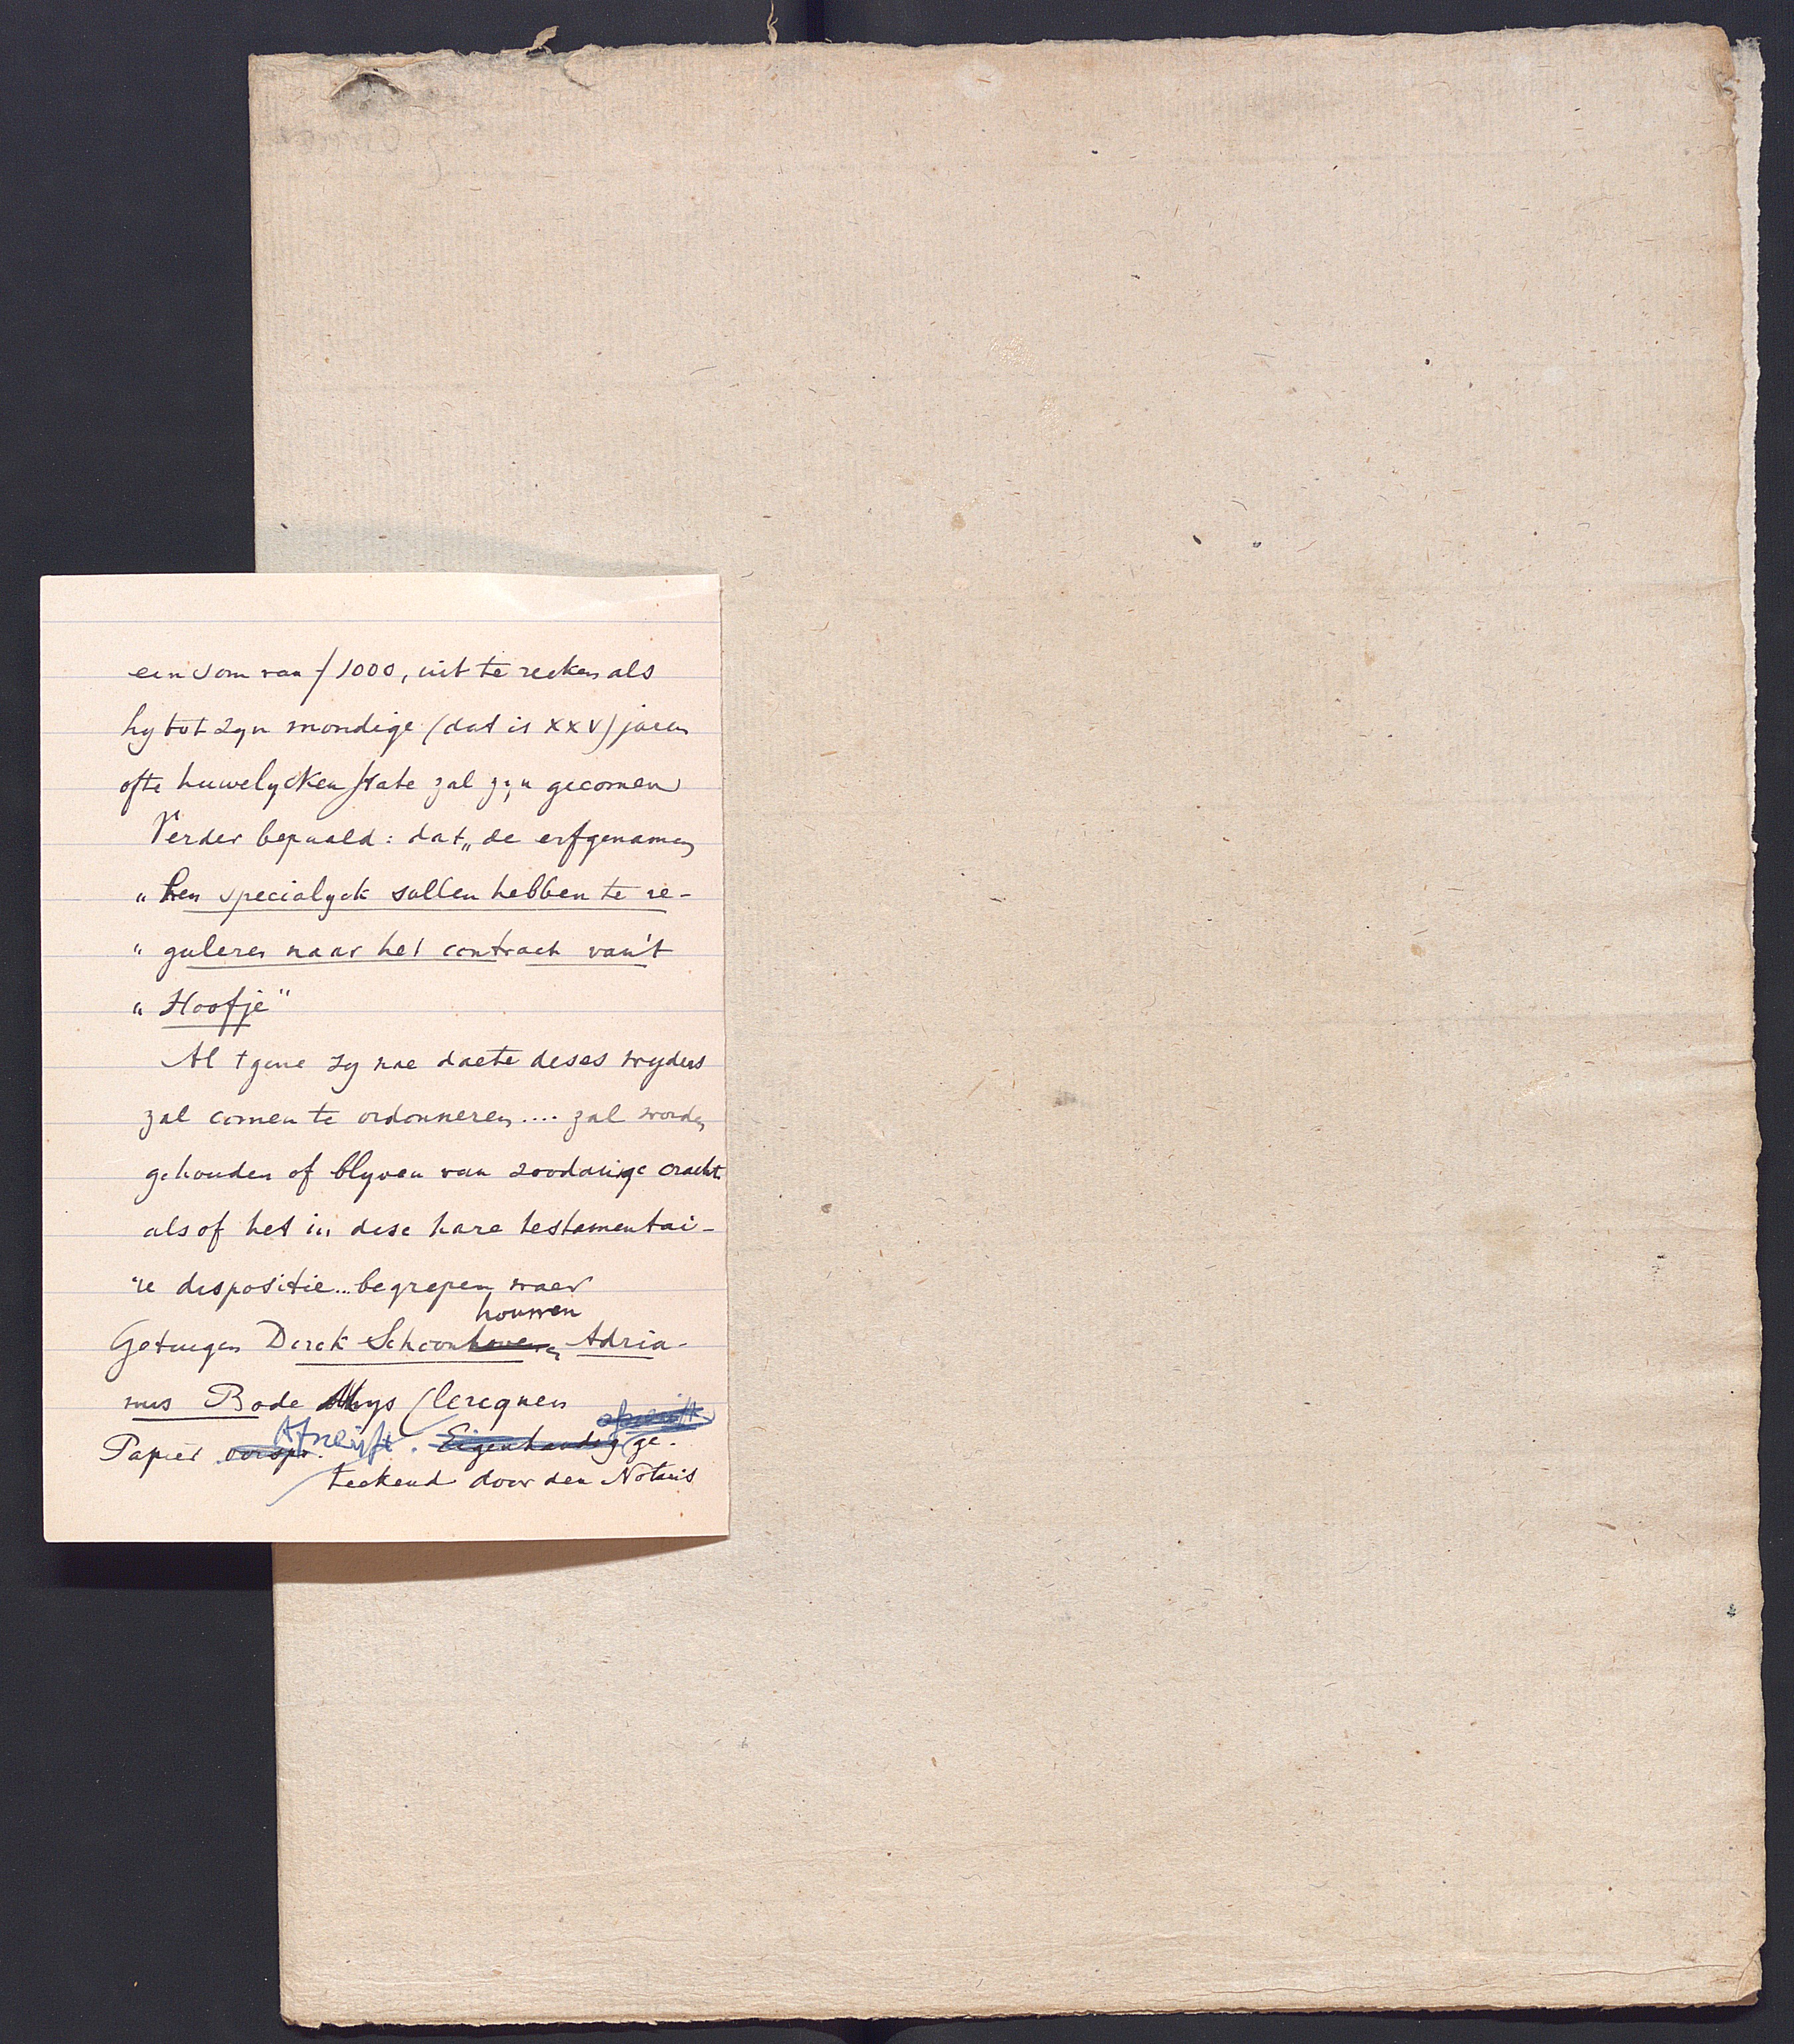 een som van ƒ 1000, uit te recken als
hy tot zyn mondige (dat is XXV) jaren
ofte huwelycken state zal zyn gecomen
Verder bepaald: dat „de erfgenamen
„ hen specialyck sullen hebben te re-
„ guleren naar het contract van't
„ Hoofje"
Al tgene zy nae daete deses wyders
zal comen te ordonneren .... zal worden
gehouden of blyven van zoodanige cracht
als of het in dese hare testamentai-
re dispositie... begrepen waer
houwen
Getuigen Derck Schoonhoven Adria-
nus Bode Clercquen
Papier oorspr. Afschrift. Eigenhandig ge-
teekend door den Notaris